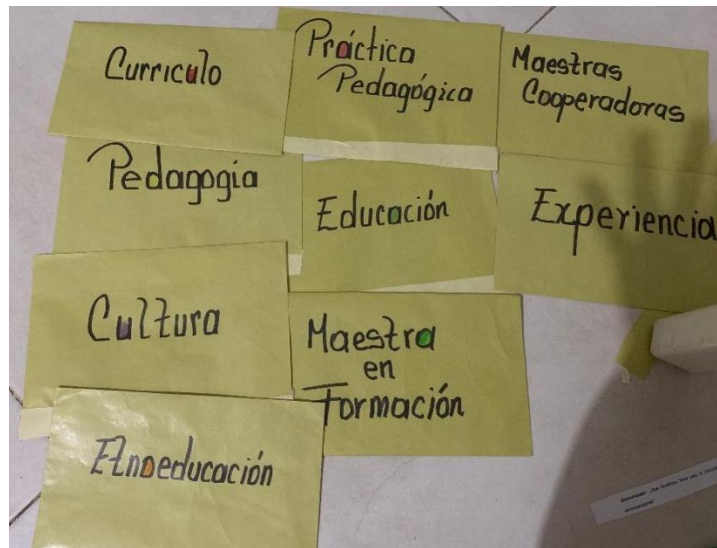 Curriculo
Práctica
Pedagógica
Maestras
Cooperadoras
Pedagogia
Educación
Experiencia
Cultura
Maestra
en
Formación
Etnoeducación